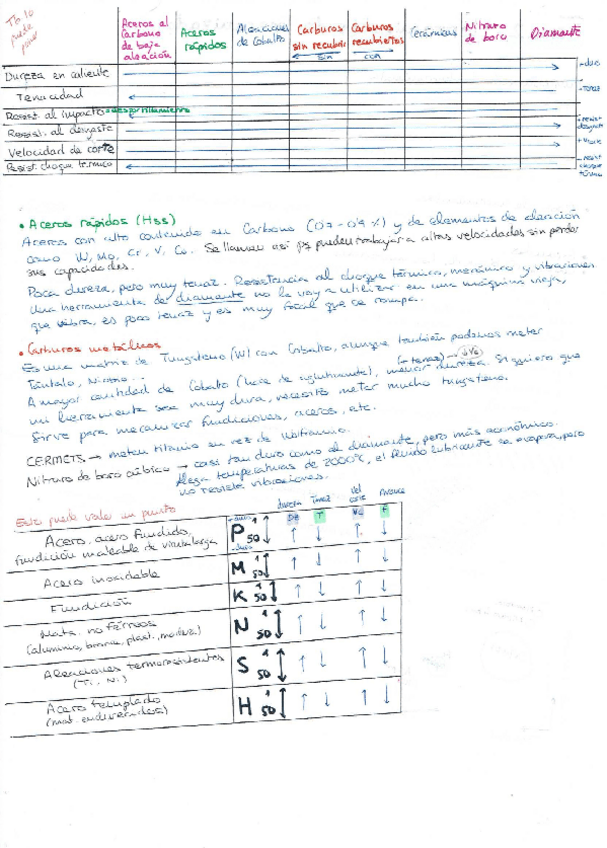 Tb lo
puede
poner
Aceros al Carbono de baja aleación
Aceros rápidos
Aleaciones de Cobalto
Carburos sin recubrir
Carburos recubiertos
Cerámicas
Nitruro de boro
Diamante
sin
con
Dureza en caliente
+ duro
Tenacidad
+ tenaz
Resist. al impacto
Resist. al desgaste
+ resist desgaste
Velocidad de corte
Resist. choque térmico
+ resist choque térmico
• Aceros rápidos (HSS)
Aceros con alto contenido en Carbono (0'7 - 0'9 %) y de elementos de aleación
como W, Mo, Cr, V, Co. Se llaman así pq pueden trabajar a altas velocidades sin perder
sus capacidades.
Poca dureza, pero muy tenaz. Resistencia al choque térmico, mecánico y vibraciones
Una herramienta de diamante no la voy a utilizar en una máquina vieja,
que vibra, es poco tenaz y es muy fácil que se rompa.
• Carburos metálicos
Es una matriz de Tungsteno (W) con Cobalto, aunque también podemos meter
Tántalo, Nitruro...
A mayor cantidad de Cobalto (hace de aglutinante), menor dureza. Si quiero que
(+ tenaz) → ↓Vc
mi herramienta sea muy dura, necesito meter mucho tungsteno.
Sirve para mecanizar fundiciones, aceros, etc.
CERMETS → meten titanio en vez de
Nitruro de boro cúbico → casi tan duro como el diamante, pero más económico.
llega temperaturas de 2000ºC, el fluido lubricante se evapora, pero
no resiste vibraciones.
Esto puede valer un punto
dureza Tenaz Vel corte Avance
Acero, acero fundido, fundición maleable de viruta larga
P 1 50 ↕ ↑ ↓ ↑ ↓
Acero inoxidable M 1 50 ↕ ↑ ↓ ↑ ↓
Fundición K 1 50 ↕ ↑ ↓ ↑ ↓
Mats. no férreos
(aluminio, bronce, plást., madera.) N 1 50 ↕ ↑ ↓ ↑ ↓
Aleaciones termorresistentes
(Ti, Ni) S 1 50 ↕ ↑ ↓ ↑ ↓
Acero templado
(mat. endurecidos) H 1 50 ↕ ↑ ↓ ↑ ↓